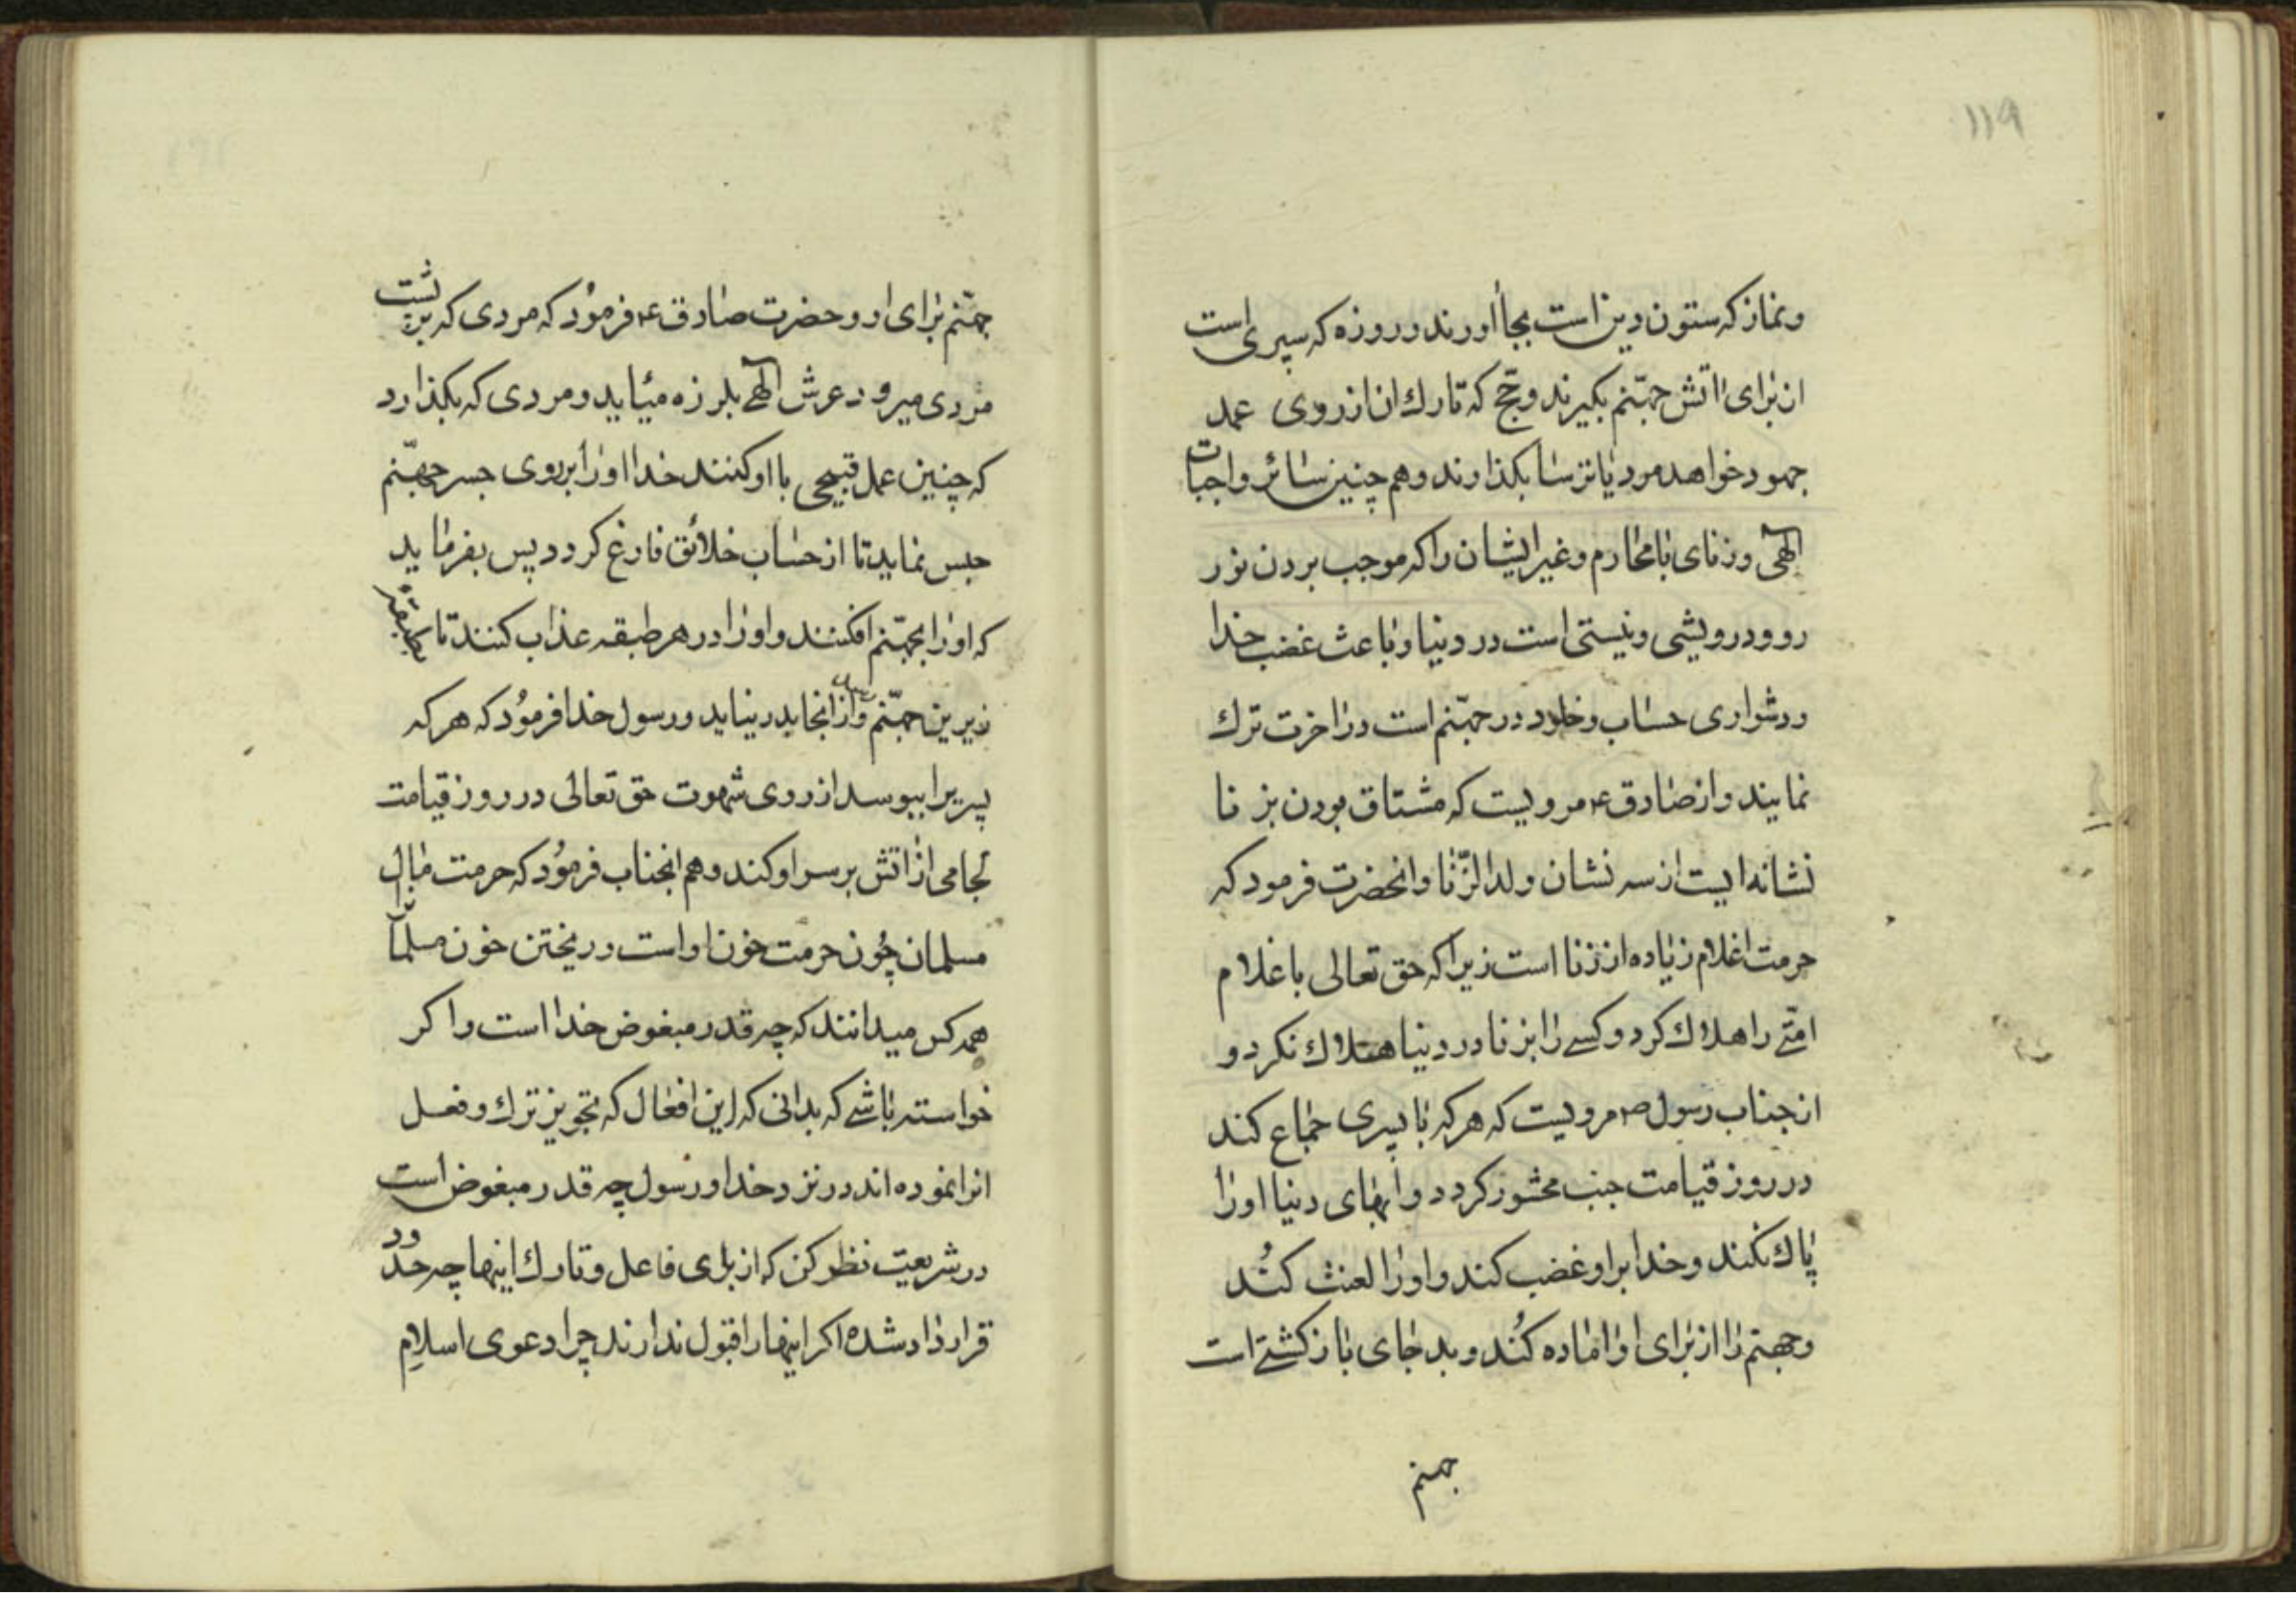 ۱۱۹
ونماز که ستون دین است بجا اورند و روزه که سپری است
ان برای اتش جهنّم بکیرند و حجّ که تارك ان از روی عمد
جهود خواهد مرد یا ترسا بکذارند و هم چنین سائر واجبات
الهی و زنای با محارم و غیر ایشان را که موجب بردن نور
رو و درویشی و نیستی است در دنیا و باعث غضب خدا
و دشواری حساب و خلود در جهنّم است در اخرت ترك
نمایند و از صادق ع مرویست که مشتاق بودن بزنا
نشانه ایست از سه نشان ولد الزّنا و انحضرت فرمود که
حرمت اغلام زیاده از زنا است زیرا که حق تعالی باغلام
امّتی را هلاك کرد و کسی را بزنا در دنیا هلاك نکرد و
از جناب رسول ص مرویست که هر که با پسری جماع کند
در روز قیامت جنب محشور کردد و ابهای دنیا او را
پاك نکند و خدا بر او غضب کند و او را لعنت کند
و جهنم را از برای او اماده کند و بد جای باز کشتی است
جهنم
جهنّم برای او و حضرت صادق ع فرمود که مردی که بر پشت
مردی میرود عرش الهی بلرزه میاید و مردی که بکذارد
که چنین عمل قبیحی با او کنند خدا او را بر روی جسر جهنّم
حبس نماید تا از حساب خلائق فارغ کردد پس بفرماید
که او را بجهنّم افکنند و او را در هر طبقه عذاب کنند تا بطبقه
زیرین جهنّم و از انجا بدر نیاید و رسول خدا فرمود که هر که
پسریرا ببوسد از روی شهوت حق تعالی در روز قیامت
لجامی از اتش بر سر او کند و هم انجناب فرمود که حرمت مال
مسلمان چون حرمت خون او است و ریختن خون مسلمان
همه کس میدانند که چه قدر مبغوض خدا است و اکر
خواسته باشی که بدانی که این افعال که تجویز ترك و فعل
انرا نموده اند در نزد خدا و رسول چه قدر مبغوض است
در شریعت نظر کن که از برای فاعل و تارك اینها چه حدود
قرار داد شده اکر اینها را قبول ندارند چرا دعوی اسلام